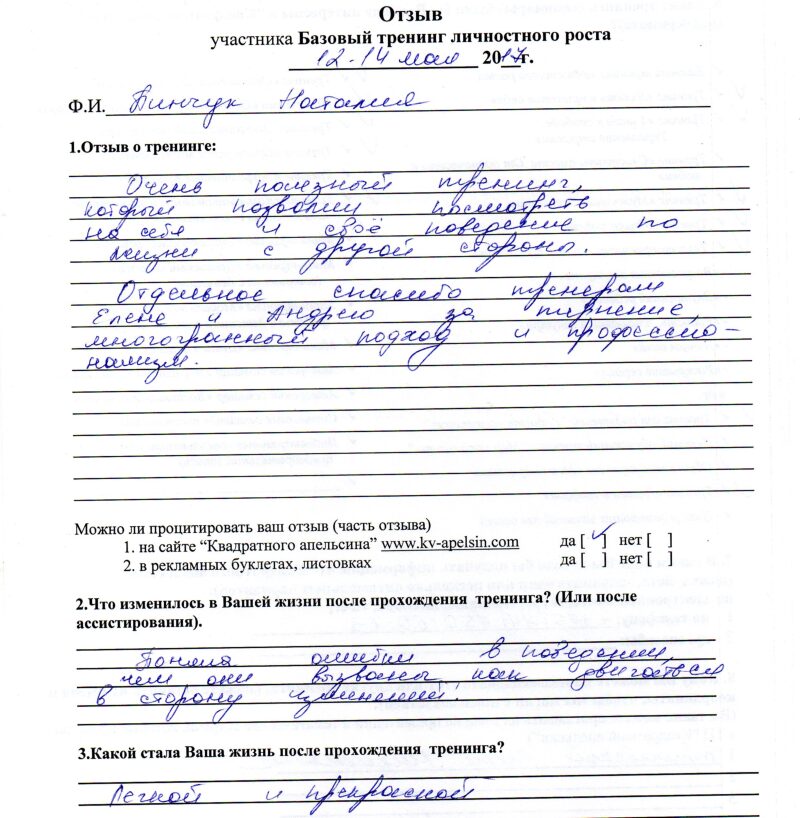 Отзыв
участника Базовый тренинг личностного роста
12-14 мая 2017г.
Ф.И. Пинчук Наталия
1.Отзыв о тренинге:
Очень полезный тренинг,
который позволил посмотреть
на себя и своё поведение по
жизни с другой стороны.
Отдельное спасибо тренерам
Елене и Андрею за терпение,
многогранный подход и профессио-
нализм.
Можно ли процитировать ваш отзыв (часть отзыва)
1. на сайте “Квадратного апельсина” www.kv-apelsin.com да [ ✓ ] нет [ ]
2. в рекламных буклетах, листовках да [ ] нет [ ]
2.Что изменилось в Вашей жизни после прохождения тренинга? (Или после
ассистирования).
Поняла ошибки в поведении,
чем они вызваны, как двигаться
в сторону изменений.
3.Какой стала Ваша жизнь после прохождения тренинга?
Легкой и прекрасной